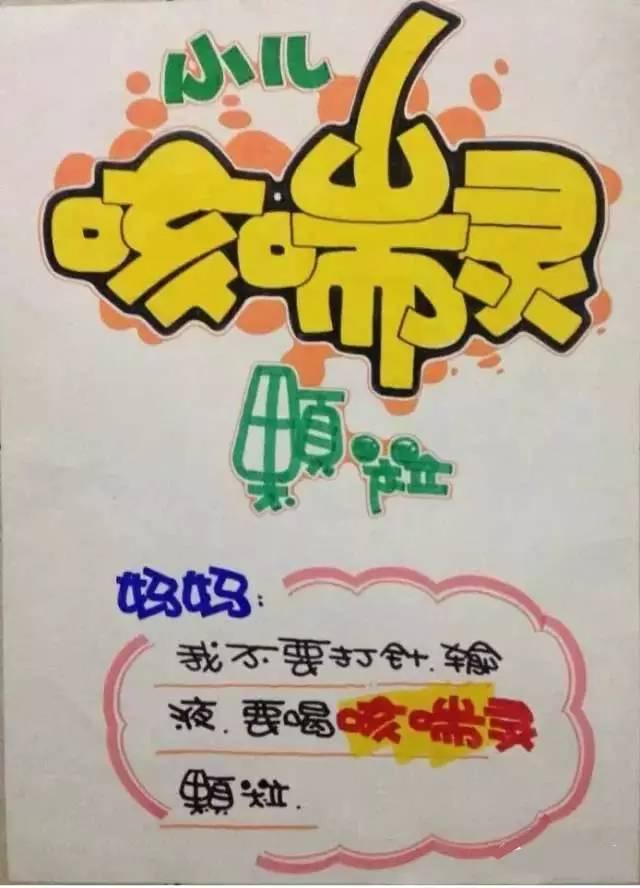 小儿
咳喘灵
颗粒
妈妈:
我不要打针.输
液.要喝咳喘灵
颗粒.